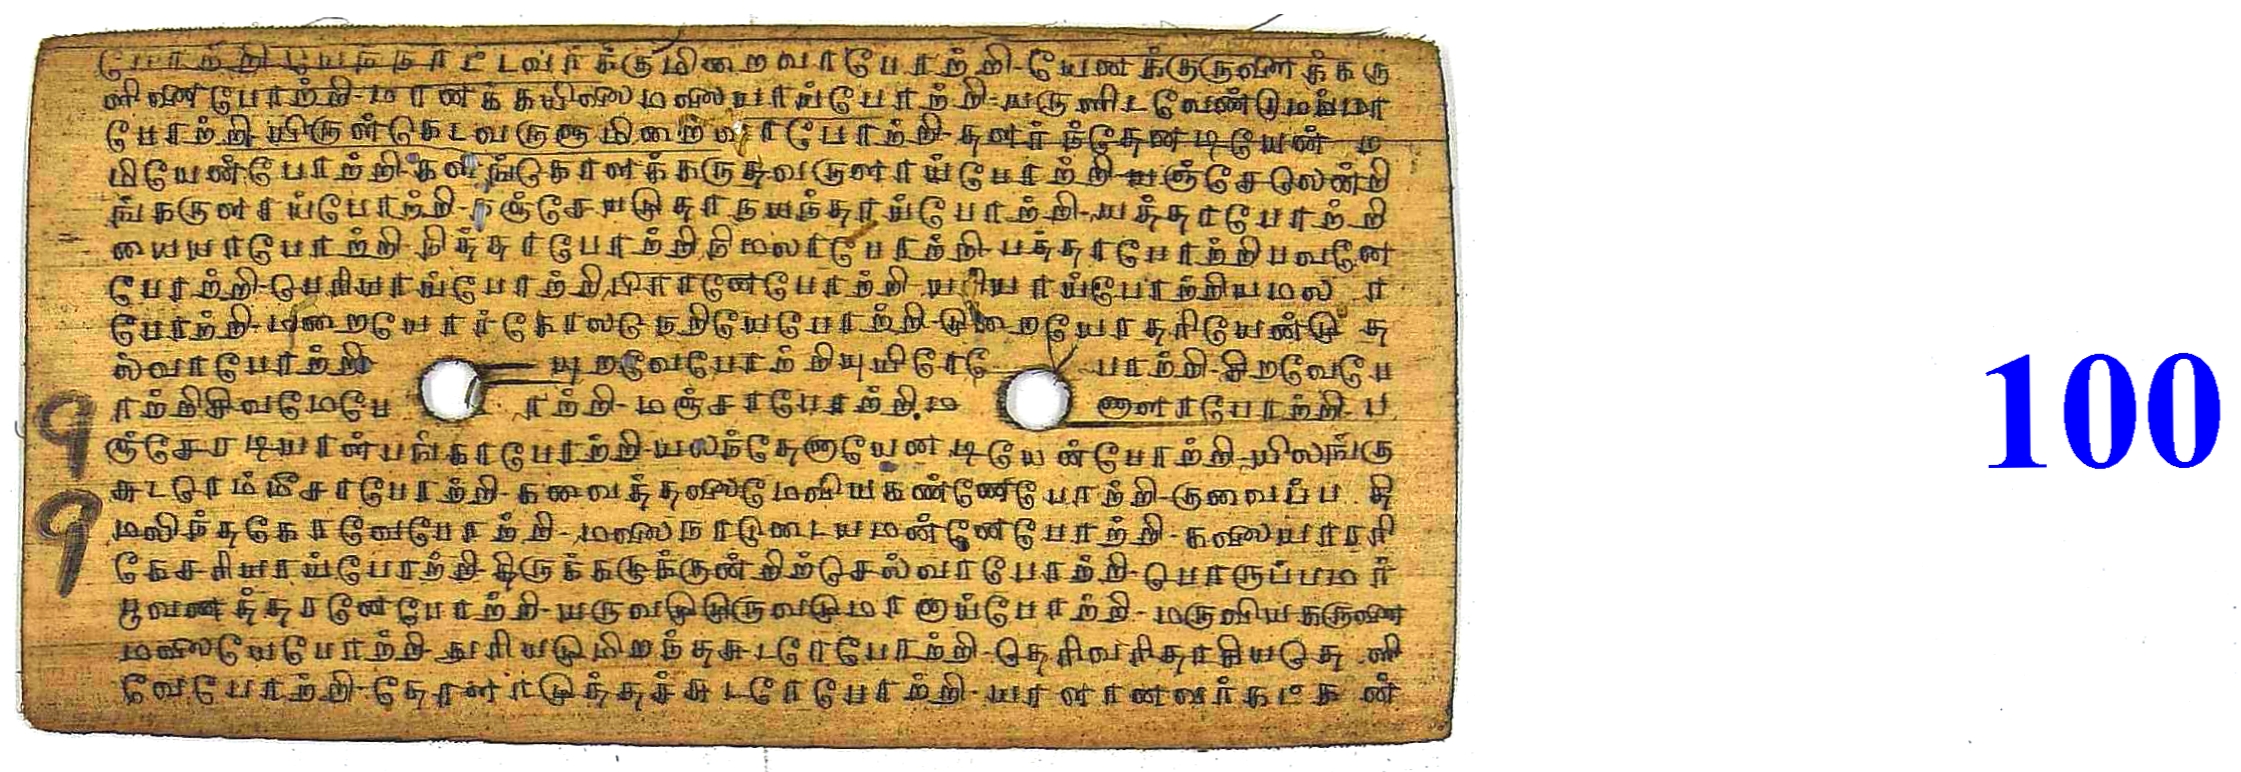 போற்றி-யேநநாட்டவர்க்குமிறைவாபோற்றி-யேனக்குருவினக்கரு
ளினபோற்றி-மானக்கயிலைமலையாய்போற்றி-யருளிடவேண்டுமம்மா
போற்றி-யிருள்கெடவருளுமிறைவாபோற்றி-தளர்ந்தேனடியேன் ம
மியேன்போற்றி-களங்கொளக்கருதவருளாய்போற்றி-யஞ்சேலென்றி
ங்கருளாய்போற்றி-நஞ்சேயமுதாநயந்தாய்போற்றி-யத்தாபோற்றி
யையாபோற்றி-நித்தாபோற்றிநிமலாபோற்றி-பத்தாபோற்றிபவனே
போற்றி-பெரியாய்போற்றிபிரானேபோற்றி-யரியாய்போற்றியமலா
போற்றி-மறையோர்கோலநெறியேபோற்றி-முறையோதரியேன்மு த
ல்வாபோற்றி யுறவேபோற்றியுயிரே போற்றி-சிறவேபே
ாற்றிசிவமேபோ ற்றி-மஞ்சாபோற்றி.ம ணாளாபோற்றி-ப
ஞ்சேரடியான்பங்காபோற்றி-யலந்தேனாயேனடியேன்போற்றி-யிலங்கு
சுடரெம்மீசாபோற்றி-கவைத்தலைமேவியகண்ணேபோற்றி-குவைப்பதி
மலிந்தகோவேபோற்றி-மலைநாடுடையமன்னேபோற்றி-கலையாரரி
கேசரியாய்போற்றி-திருக்கழுக்குன்றிற்செல்வாபோற்றி-பொருப்பமர்
பூவணத்தரனேபோற்றி-யருவமுமுருவமுமானாய்போற்றி-மருவியகருணை
மலையேபோற்றி-துரியமுமிறந்தசுடரேபோற்றி-தெரிவரிதாகியதெளி
வேபோற்றி-தோளாமுத்தச்சுடரேபோற்றி-யாளானவர்கட்கன்
99
100